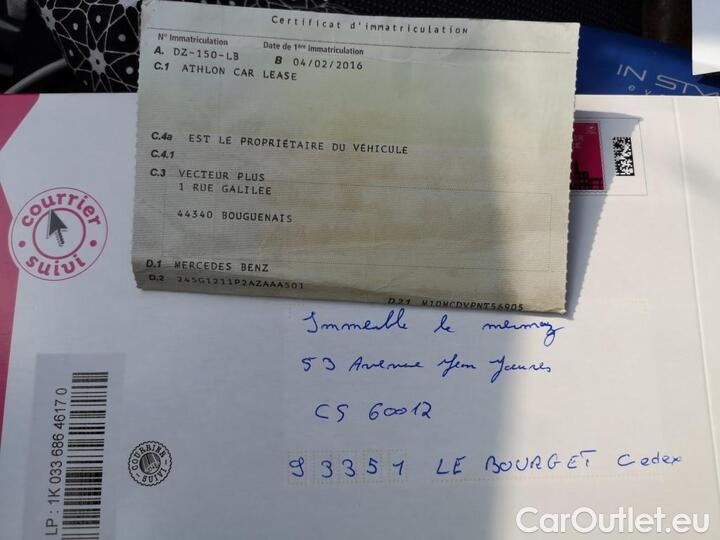 Certificat d'immatriculation
N° Immatriculation
Date de 1ère immatriculation
A. DZ-150-LB
B 04/02/2016
C.1 ATHLON CAR LEASE
C.4a EST LE PROPRIÉTAIRE DU VÉHICULE
C.4.1
C.3 VECTEUR PLUS
1 RUE GALILEE
44340 BOUGUENAIS
D.1 MERCEDES BENZ
D.2 245G1211P2AZAAA501
D.2.1 M10MCDVPNT56905
IN STY
courrier
suivi
Immeuble le mermoz
53 Avenue Jean Jaures
CS 60012
93351 LE BOURGET Cedex
COURRIER
SUIVI
LP : 1K 033 686 4617 0
CarOutlet.eu